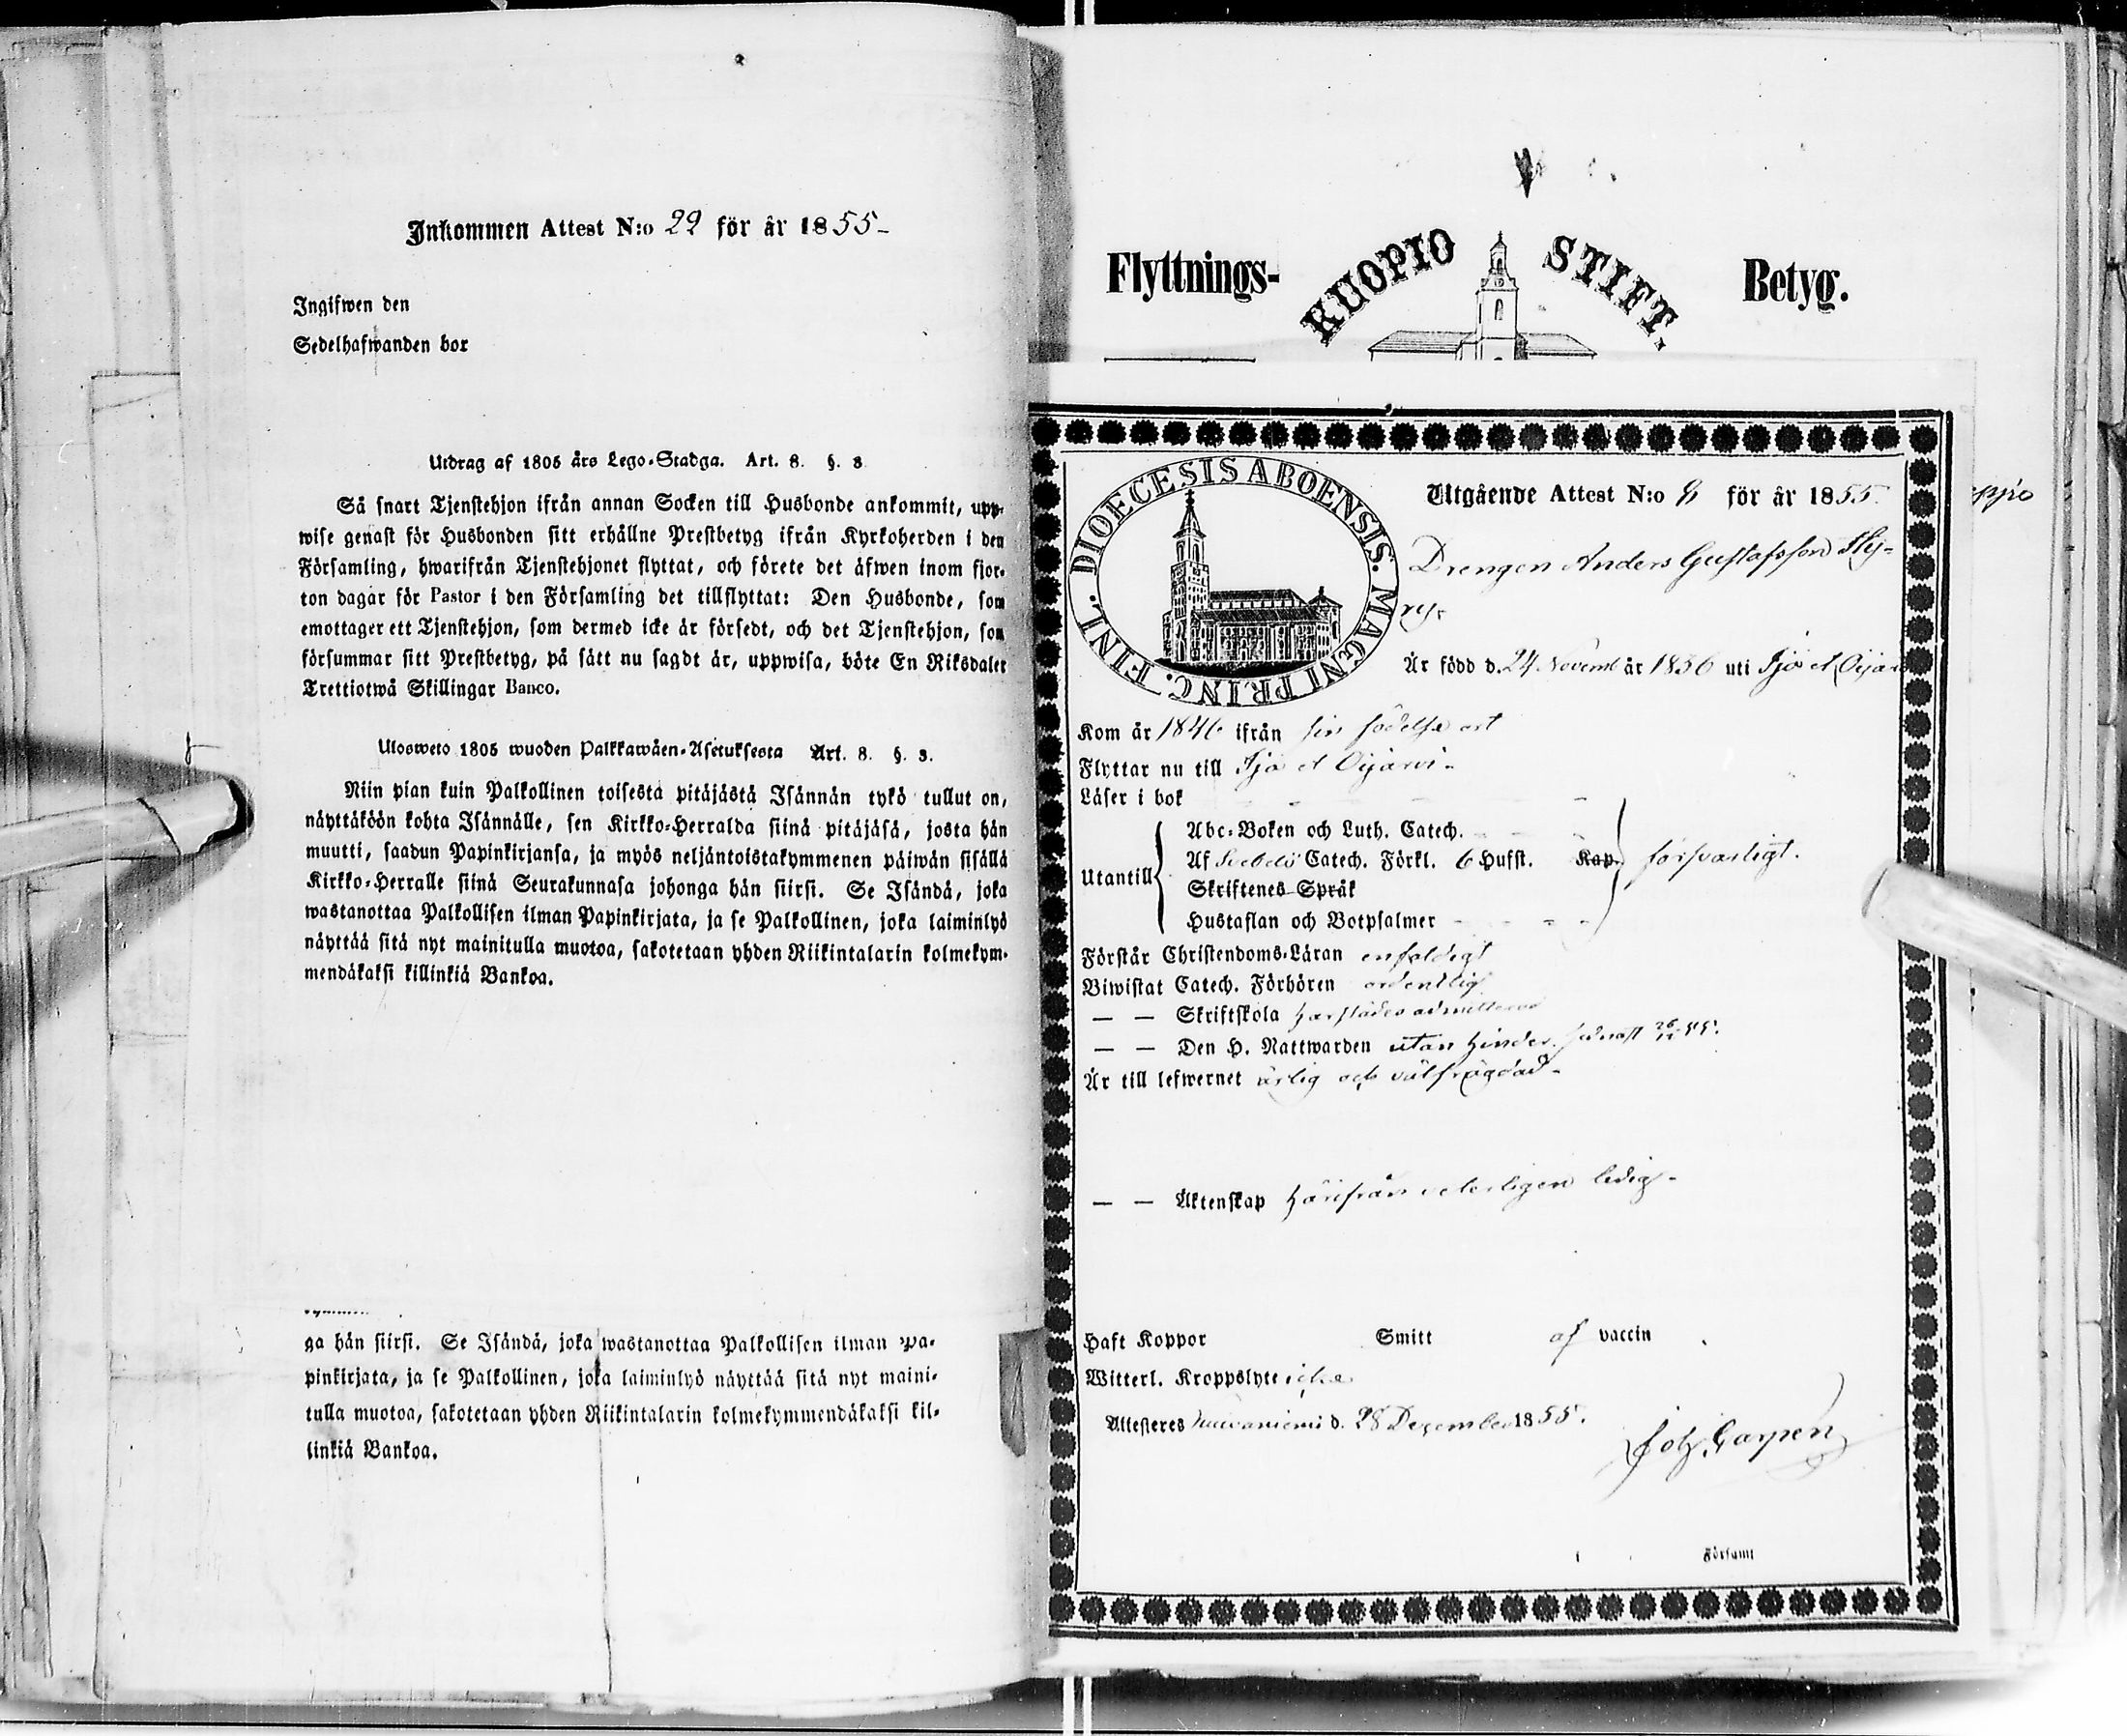 Inkommen Attest N:o 22 för år 1855-
Ingifwen den
Sedelhafwanden bor
Utdrag af 1805 års Lego-Stadga. Art. 8. §. 3
Så snart Tjenstehjon ifrån annan Socken till Husbonde ankommit, upp-
wise genast för Husbonden sitt erhållne Prestbetyg ifrån Kyrkoherden i den
Församling, hwarifrån Tjenstehjonet flyttat, och förete det äfwen inom fjor-
ton dagar för Pastor i den Församling det tillflyttat: Den Husbonde, som
emottager ett Tjenstehjon, som dermed icke är försedt, och det Tjenstehjon, som
försummar sitt Prestbetyg, på sätt nu sagdt är, uppwisa, böte En Riksdaler
Trettiotwå Skillingar Banco.
Ulosweto 1805 wuoden Palkkawäen-Asetuksesta Art. 8. §. 3.
Niin pian kuin Palkollinen toisesta pitäjästä Isännän tykö tullut on,
näyttäköön kohta Isännälle, sen Kirkko-Herralda siinä pitäjäsä, josta hän
muutti, saadun Papinkirjansa, ja myös neljäntoistakymmenen päiwän sisällä
Kirkko-Herralle siinä Seurakunnasa johonga hän siirsi. Se Isändä, joka
wastanottaa Palkollisen ilman Papinkirjata, ja se Palkollinen, joka laiminlyö
näyttää sitä nyt mainitulla muotoa, sakotetaan yhden Riikintalarin kolmekym-
mendäkaksi killinkiä Bankoa.
ga hän siirsi. Se Isändä, joka wastanottaa Palkollisen ilman Pa-
pinkirjata, ja se Palkollinen, joka laiminlyö näyttää sitä nyt maini-
tulla muotoa, sakotetaan yhden Riikintalarin kolmekymmendäkaksi kil-
linkiä Bankoa.
Flyttnings- KUOPIO STIFT. Betyg.
DIOECESIS ABOENSIS. MAGNI PRINC. FINL.
Utgående Attest N:o 8 för år 1855.
Drengen Anders Gustafsson Hy-
ry.
Är född d. 24 Novemb år 1836 uti Ijo et Oijärvi
Kom år 1846 ifrån sin födelse ort
Flyttar nu till Ijo et Oijärvi-
Läser i bok
Abc-Boken och Luth. Catech.
Utantill Af Svebelii Catech. Förkl. 6 Hufst. Kap. försvarligt.
Skriftenes Språk
Hustaflan och Botpsalmer
Förstår Christendoms-Läran enfaldigt
Biwistat Catech. Förhören ordentlig
— — Skriftskola härstädes admitterad
— — Den H. Nattwarden utan hinder, sednast 26/12 55.
Är till lefwernet ärlig och välfrägdad-
— — Äktenskap härifrån veterligen ledig-
Haft Koppor Smitt af vaccin
Witterl. Kroppslyte icke
Attesteres d. 28 December 1855.
Joh. Garpen
Församl